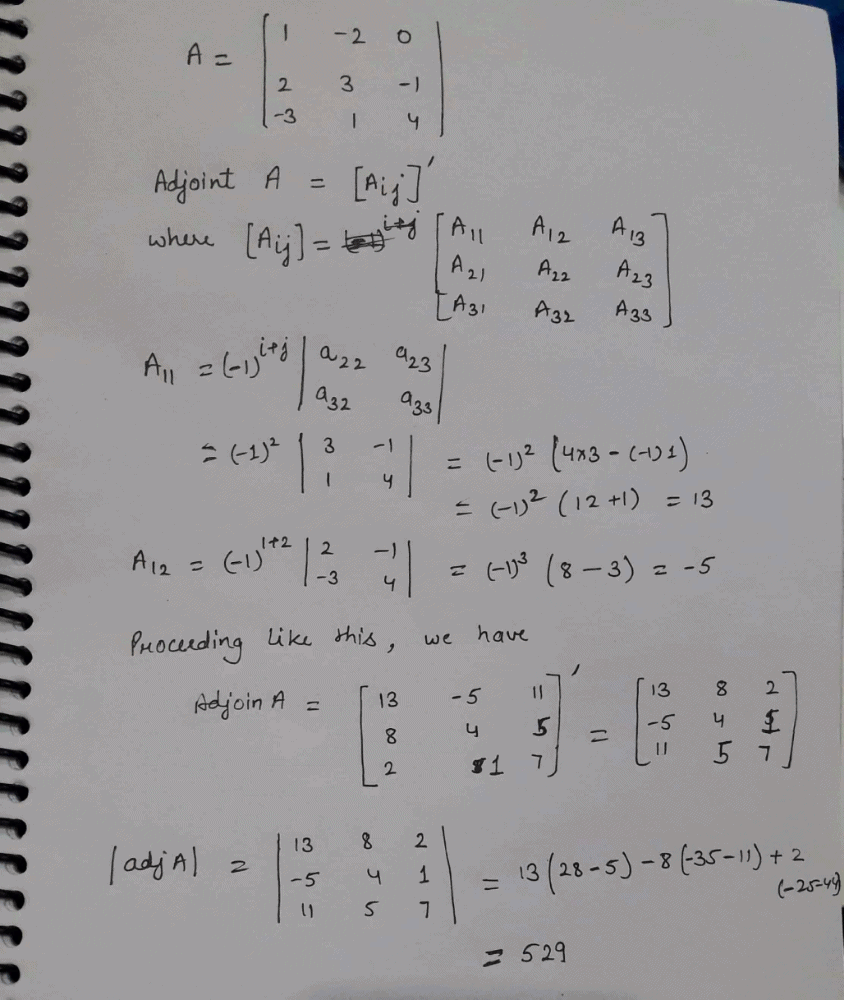 A = [ 1 -2 0
2 3 -1
-3 1 4 ]
Adjoint A = [Aij]'
where [Aij] = i+j [ A11 A12 A13
A21 A22 A23
A31 A32 A33 ]
A11 = (-1)^i+j | a22 a23
a32 a33 |
= (-1)² | 3 -1
1 4 | = (-1)² (4×3 - (-1)1)
= (-1)² (12+1) = 13
A12 = (-1)^1+2 | 2 -1
-3 4 | = (-1)³ (8-3) = -5
Proceeding like this, we have
Adjoin A = [ 13 -5 11
8 4 5
2 1 7 ]' = [ 13 8 2
-5 4 1
11 5 7 ]
|adj A| = | 13 8 2
-5 4 1
11 5 7 | = 13(28-5) -8(-35-11) + 2
(-25-44)
= 529